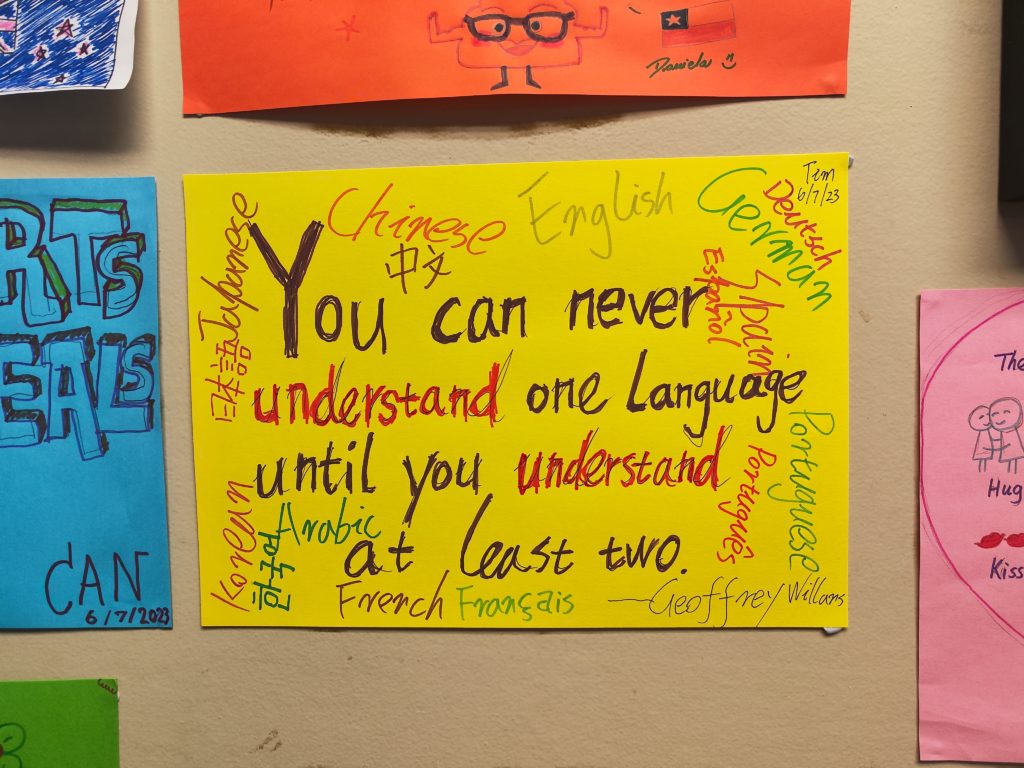 Daniela
RTS
EALS
CAN
6/7/2023
Tim
6/7/23
Chinese
中文
English
German
Deutsch
Spain
Español
Japanese
日本語
You can never
understand one language
until you understand
at least two.
Portuguese
Português
Korean
한국어
Arabic
French Français
—Geoffrey Willans
The
Hug
Kiss